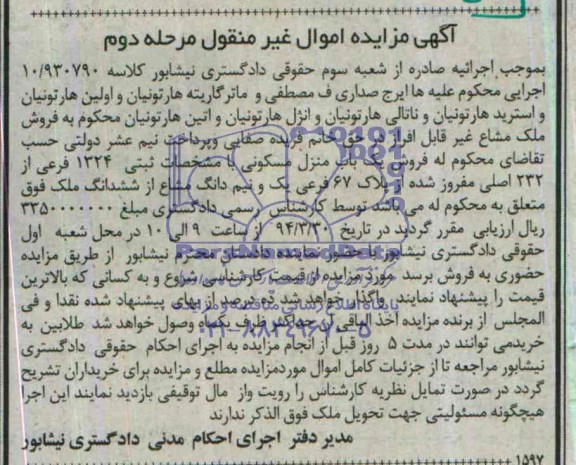 آگهی مزایده اموال غیر منقول مرحله دوم
بموجب اجرائیه صادره از شعبه سوم حقوقی دادگستری نیشابور کلاسه ۱۰/۹۳۰۷۹۰
اجرایی محکوم علیه ها ایرج صداری ف مصطفی و ماترگاریته هارتونیان و اولین هارتونیان
و استرید هارتونیان و ناتالی هارتونیان و انژل هارتونیان و اتین هارتونیان محکوم به فروش
ملک مشاع غیر قابل افراز در حق خانم فریده صفایی وپرداخت نیم عشر دولتی حسب
تقاضای محکوم له فروش یک باب منزل مسکونی با مشخصات ثبتی ۱۳۲۴ فرعی از
۲۳۲ اصلی مفروز شده از پلاک ۶۷ فرعی یک و نیم دانگ مشاع از ششدانگ ملک فوق
متعلق به محکوم له می باشد توسط کارشناس رسمی دادگستری مبلغ ۳۳۵۰۰۰۰۰۰۰
ریال ارزیابی مقرر گردید در تاریخ ۹۴/۳/۳۰ از ساعت ۹ الی ۱۰ در محل شعبه اول
حقوقی دادگستری نیشابور با حضور نماینده دادستان محترم نیشابور از طریق مزایده
حضوری به فروش برسد مورد مزایده از قیمت کارشناسی شروع و به کسانی که بالاترین
قیمت را پیشنهاد نمایند واگذار خواهد شد ده درصد از بهای پیشنهاد شده نقدا و فی
المجلس از برنده مزایده اخذ الباقی از حداکثر ظرف یکماه وصول خواهد شد طلابین به
خریدمی توانند در مدت ۵ روز قبل از انجام مزایده به اجرای احکام حقوقی دادگستری
نیشابور مراجعه تا از جزئیات کامل اموال موردمزایده مطلع و مزایده برای خریداران تشریح
گردد در صورت تمایل نظریه کارشناس را رویت واز مال توقیفی بازدید نمایند این اجرا
هیچگونه مسئولیتی جهت تحویل ملک فوق الذکر ندارند
مدیر دفتر اجرای احکام مدنی دادگستری نیشابور
۱۵۹۷